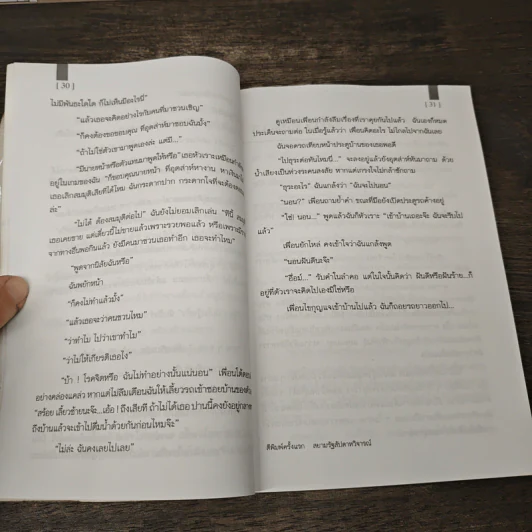 [ 30 ]
ไม่มีพันธะใดใด ก็ไม่เห็นมีอะไรนี่"
"แล้วเธอจะคิดอย่างไรกับคนที่มาชวนเชิญ"
"ก็คงต้องขอขอบคุณ ที่อุตส่าห์มาชอบฉันมั้ง"
"ถ้าไม่ใช่ตัวเขามาพูดเองล่ะ แต่มี..."
"มีนายหน้าหรือตัวแทนมาพูดให้หรือ" เธอหัวเราะเหมือนกำลัง
อยู่ในเกมของฉัน "ก็ขอบคุณนายหน้า ที่อุตส่าห์หางาน หาเงิน
เธอเลิกสมมุติเสียทีได้ไหม ฉันกระดากปาก กระดากใจที่จะต้อง
ล่ะ"
"ไม่ได้ ต้องสมมุติต่อไป" ฉันยังไม่ยอมเลิกเล่น "ทีนี้
เธอเคยขาย แต่เดี๋ยวนี้ไม่ขายแล้วเพราะรวยพอแล้ว หรือเพราะ
จากทางอื่นพอกินแล้ว ยังมีคนมาชวนเธอทำอีก เธอจะทำไหม"
"พูดจากนิสัยฉันหรือ"
ฉันพยักหน้า
"ก็คงไม่ทำแล้วมั้ง"
"แล้วเธอจะว่าคนชวนไหม"
"ว่าทำไม ไปว่าเขาทำไม"
"ว่าไม่ให้เกียรติเธอไง"
"บ้า ! โรคจิตหรือ ฉันไม่ทำอย่างนั้นแน่นอน" เพื่อนโต้ตอบ
อย่างคล่องแคล่ว หากแต่ไม่ลืมเตือนฉันให้เลี้ยวรถเข้าซอยบ้านของ
"สร้อย เลี้ยวซ้ายนะจ๊ะ...เอ้อ ! ถึงเสียที ถ้าไม่ได้เธอ ป่านนี้คงยังอยู่
ถึงบ้านแล้วจะเข้าไปดื่มน้ำด้วยกันก่อนไหมจ๊ะ"
"ไม่ล่ะ ฉันคงเลยไปเลย"
[ 31 ]
ดูเหมือนเพื่อนกำลังลืมเรื่องที่เราคุยกันไปแล้ว ฉันเองก็หมด
ประเด็นจะถามต่อ ในเมื่อรู้แล้วว่า เพื่อนคิดอะไร ไม่ไกลไปจากฉันเลย
ฉันจอดรถเทียบหน้าประตูบ้านของเธอพอดี
"ไปธุระต่อทันไหมนี่..." จะลงอยู่แล้วยังอุตส่าห์หันมาถาม ด้วย
น้ำเสียงเป็นห่วงระคนสงสัย หากแต่เกรงใจไม่กล้าซักถาม
"ธุระอะไร" ฉันแกล้งว่า "ฉันจะไปนอน"
"นอน?" เพื่อนถามย้ำคำ ขณะที่มือยังเปิดประตูรถค้างอยู่
"ใช่! นอน..." พูดแล้วฉันก็หัวเราะ "เข้าบ้านเถอะจ๊ะ ฉันจะรีบไป
แล้ว"
เพื่อนยักไหล่ คงเข้าใจว่าฉันแกล้งพูด
"นอนฝันดีนะจ๊ะ"
"ฮื่อม์..." รับคำในลำคอ แต่ในใจนั้นคิดว่า ฝันดีหรือฝันร้าย...ก็
อยู่ที่ตัวเราจะคิดไปเองมิใช่หรือ
เพื่อนไขกุญแจเข้าบ้านไปแล้ว ฉันก็ถอยรถยาวออกไป...
ตีพิมพ์ครั้งแรก สยามรัฐสัปดาหวิจารณ์